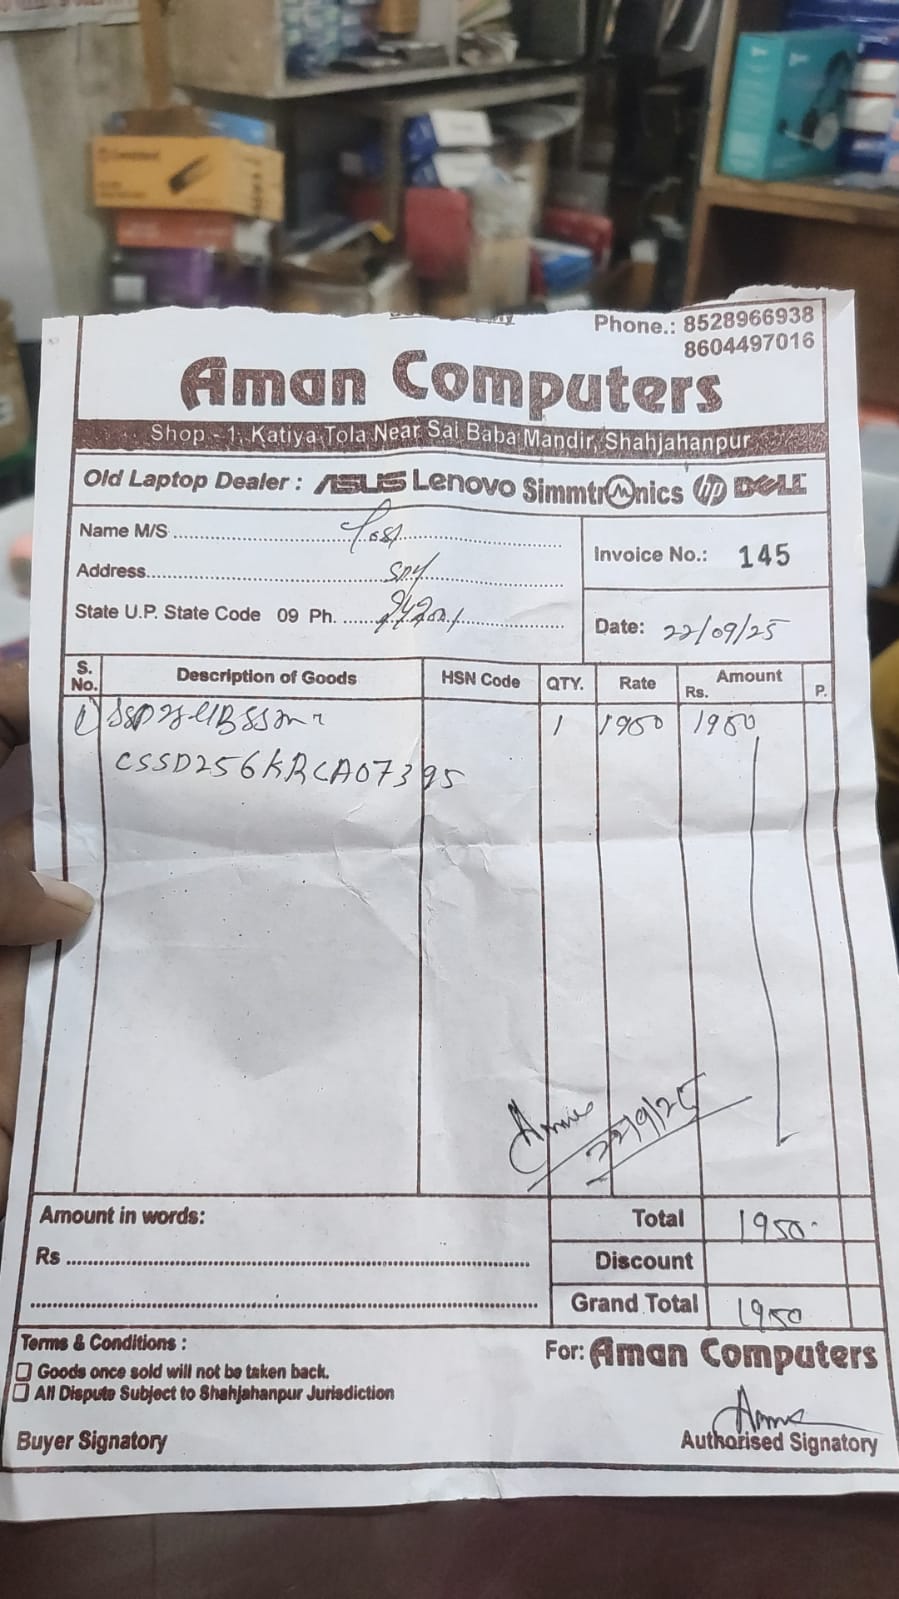 Phone.: 8528966938
8604497016
Aman Computers
Shop - 1, Katiya Tola Near Sai Baba Mandir, Shahjahanpur
Old Laptop Dealer : ASUS Lenovo Simmtronics hp DELL
Name M/S
Invoice No.: 145
Address
State U.P. State Code 09 Ph.
Date: 22/09/25
S. No. Description of Goods HSN Code QTY. Rate Amount Rs. P.
1 1 1950 1950
CSSD256KRCA07395
22/9/25
Amount in words: Total 1950
Rs Discount
Grand Total 1950
Terms & Conditions :
For: Aman Computers
Goods once sold will not be taken back.
All Dispute Subject to Shahjahanpur Jurisdiction
Buyer Signatory
Authorised Signatory